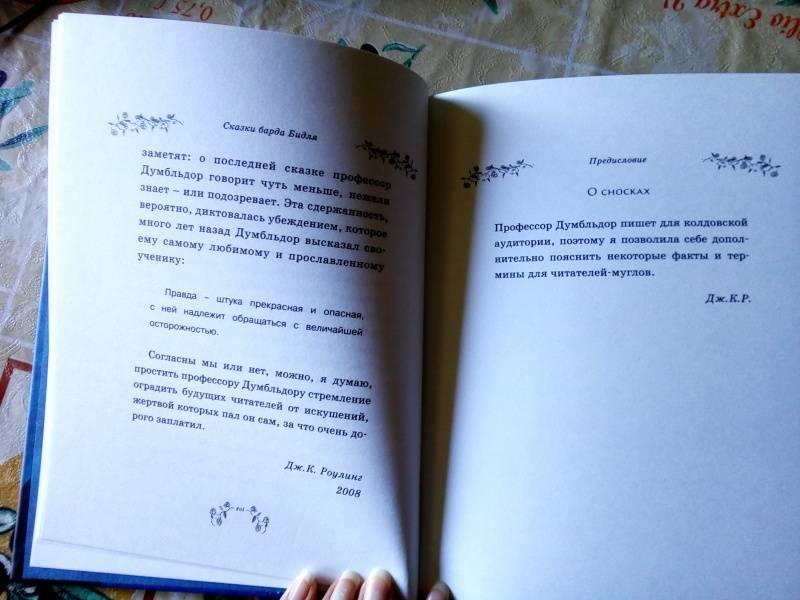 0,75 l
olio Extra V
Сказки барда Бидля
заметят: о последней сказке профессор
Думбльдор говорит чуть меньше, нежели
знает – или подозревает. Эта сдержанность,
вероятно, диктовалась убеждением, которое
много лет назад Думбльдор высказал сво-
ему самому любимому и прославленному
ученику:
Правда – штука прекрасная и опасная,
с ней надлежит обращаться с величайшей
осторожностью.
Согласны мы или нет, можно, я думаю,
простить профессору Думбльдору стремление
оградить будущих читателей от искушений,
жертвой которых пал он сам, за что очень до-
рого заплатил.
Дж.К. Роулинг
2008
Предисловие
О сносках
Профессор Думбльдор пишет для колдовской
аудитории, поэтому я позволила себе допол-
нительно пояснить некоторые факты и тер-
мины для читателей-муглов.
Дж.К.Р.